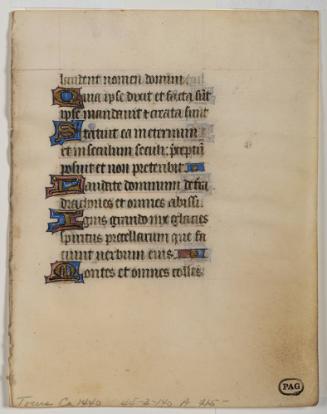 laudent nomen domini
Quia ipse dixit et facta sūt
ipse mandavit et creata sunt
Statuit ea in eternum
et in seculum seculi: preceptū
posuit et non preteribit
Laudate dominum de tra
dracones et omnes abissi
Ignis grando nix glacies
spiritus procellarum que fa
ciunt verbum eius
Montes et omnes colles:
Tours Ca 1440 45-2-140 A 415-
PAG